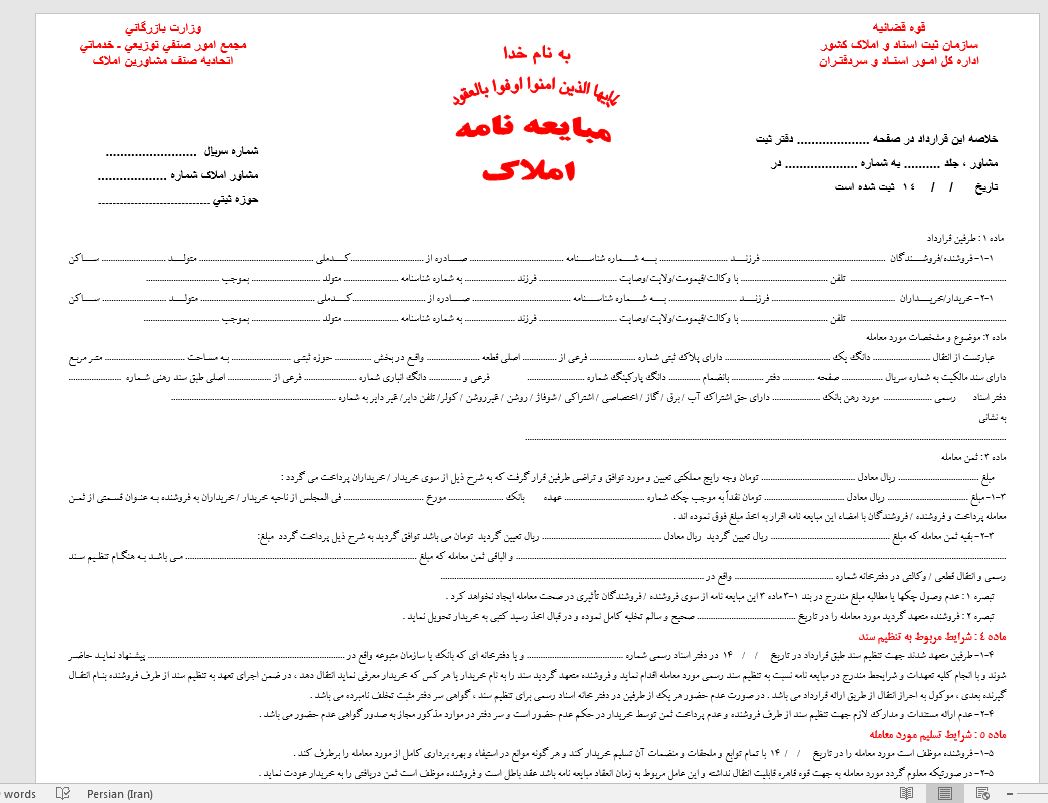 قوه قضائيه
سازمان ثبت اسناد و املاک کشور
اداره کل امور اسناد و سردفتران
به نام خدا
ياايها الذين امنوا اوفوا بالعقود
مبايعه نامه
املاک
وزارت بازرگاني
مجمع امور صنفي توزيعي - خدماتي
اتحاديه صنف مشاورين املاک
خلاصه اين قرارداد در صفحه .................... دفتر ثبت
مشاور ، جلد .......... به شماره .................... در
تاريخ / / ١٤ ثبت شده است
شماره سريال .........................
مشاور املاک شماره ...................
حوزه ثبتي ...............................
ماده ۱ : طرفين قرارداد
۱-۱- فروشنده/فروشندگان ........................ فرزند ........................ به شماره شناسنامه ........................ صادره از ........................ کدملی ........................ متولد ........................ ساکن
........................ تلفن ........................ با وکالت/قيمومت/ولايت/وصايت ........................ فرزند ........................ به شماره شناسنامه ........................ متولد ........................ بموجب ........................
۱-۲- خريدار/خريداران ........................ فرزند ........................ به شماره شناسنامه ........................ صادره از ........................ کدملی ........................ متولد ........................ ساکن
........................ تلفن ........................ با وکالت/قيمومت/ولايت/وصايت ........................ فرزند ........................ به شماره شناسنامه ........................ متولد ........................ بموجب ........................
ماده ۲ : موضوع و مشخصات مورد معامله
عبارتست از انتقال ........................ دانگ يک ........................ دارای پلاک ثبتی شماره ........................ فرعی از ........................ اصلی قطعه ........................ واقع در بخش ........................ حوزه ثبتی ........................ به مساحت ........................ متر مربع
دارای سند مالکيت به شماره سريال ........................ صفحه ........................ دفتر ........................ بانضمام ........................ دانگ پارکينگ شماره ........................ فرعی و ........................ دانگ انباری شماره ........................ فرعی از ........................ اصلی طبق سند رهنی شماره ........................
دفتر اسناد رسمی ........................ مورد رهن بانک ........................ دارای حق اشتراک آب / برق / گاز / اختصاصی / اشتراکی / شوفاژ / روشن / غيرروشن / کولر/ تلفن داير/ غير داير به شماره ........................
به نشانی
........................
ماده ۳ : ثمن معامله
مبلغ ........................ ريال معادل ........................ تومان وجه رايج مملکتی تعيين و مورد توافق و تراضی طرفين قرار گرفت که به شرح ذيل از سوی خريدار / خريداران پرداخت می گردد :
۳-۱- مبلغ ........................ ريال معادل ........................ تومان نقداً به موجب چک شماره ........................ عهده بانک ........................ مورخ ........................ فی المجلس از ناحيه خريدار / خريداران به فروشنده به عنوان قسمتی از ثمن
معامله پرداخت و فروشنده / فروشندگان با امضاء اين مبايعه نامه اقرار به اخذ مبلغ فوق نموده اند .
۳-۲- بقيه ثمن معامله که مبلغ ........................ ريال تعيين گرديد ريال معادل ........................ ريال تعيين گرديد تومان می باشد توافق گرديد به شرح ذيل پرداخت گردد مبلغ:
........................ و الباقی ثمن معامله که مبلغ ........................ می باشد به هنگام تنظيم سند
رسمی و انتقال قطعی / وکالتی در دفترخانه شماره ........................ واقع در ........................
تبصره ۱ : عدم وصول چکها يا مطالبه مبلغ مندرج در بند ۱-۳ ماده ۳ اين مبايعه نامه از سوی فروشنده / فروشندگان تأثيری در صحت معامله ايجاد نخواهد کرد .
تبصره ۲ : فروشنده متعهد گرديد مورد معامله را در تاريخ ........................ صحيح و سالم تخليه کامل نموده و در قبال اخذ رسيد کتبی به خريدار تحويل نمايد .
ماده ٤ : شرايط مربوط به تنظيم سند
۴-۱- طرفين متعهد شدند جهت تنظيم سند طبق قرارداد در تاريخ / / ۱۴ در دفتر اسناد رسمی شماره ........................ و يا دفترخانه ای که بانک يا سازمان متبوعه واقع در ........................ پيشنهاد نمايد حاضر
شوند و با انجام کليه تعهدات و شرايحط مندرج در مبايعه نامه نسبت به تنظيم سند رسمی مورد معامله اقدام نمايد و فروشنده متعهد گرديد سند را به نام خريدار يا هر کس که خريدار معرفی نمايد انتقال دهد ، در ضمن اجرای تعهد به تنظيم سند از طرف فروشنده بنام انتقال
گيرنده بعدی ، موکول به احراز انتقال از طريق ارائه قرارداد می باشد . در صورت عدم حضور هر يک از طرفين در دفتر خانه اسناد رسمی برای تنظيم سند ، گواهی سر دفتر مثبت تخلف نامبرده می باشد .
۴-۲- عدم ارائه مستندات و مدارک لازم جهت تنظيم سند از طرف فروشنده و عدم پرداخت ثمن توسط خريدار در حکم عدم حضور است و سر دفتر در موارد مذکور مجاز به صدور گواهی عدم حضور می باشد .
ماده ٥ : شرايط تسليم مورد معامله
۵-۱- فروشنده موظف است مورد معامله را در تاريخ / / ۱۴ با تمام توابع و ملحقات و منضمات آن تسليم خريدار کند و هر گونه موانع در استيفاء و بهره برداری کامل از مورد معامله را برطرف کند .
۵-۲- در صورتيکه معلوم گردد مورد معامله به جهت قوه قاهره قابليت انتقال نداشته و اين عامل مربوط به زمان انعقاد مبايعه نامه باشد عقد باطل است و فروشنده موظف است ثمن دريافتی را به خريدار عودت نمايد .
words Persian (Iran)